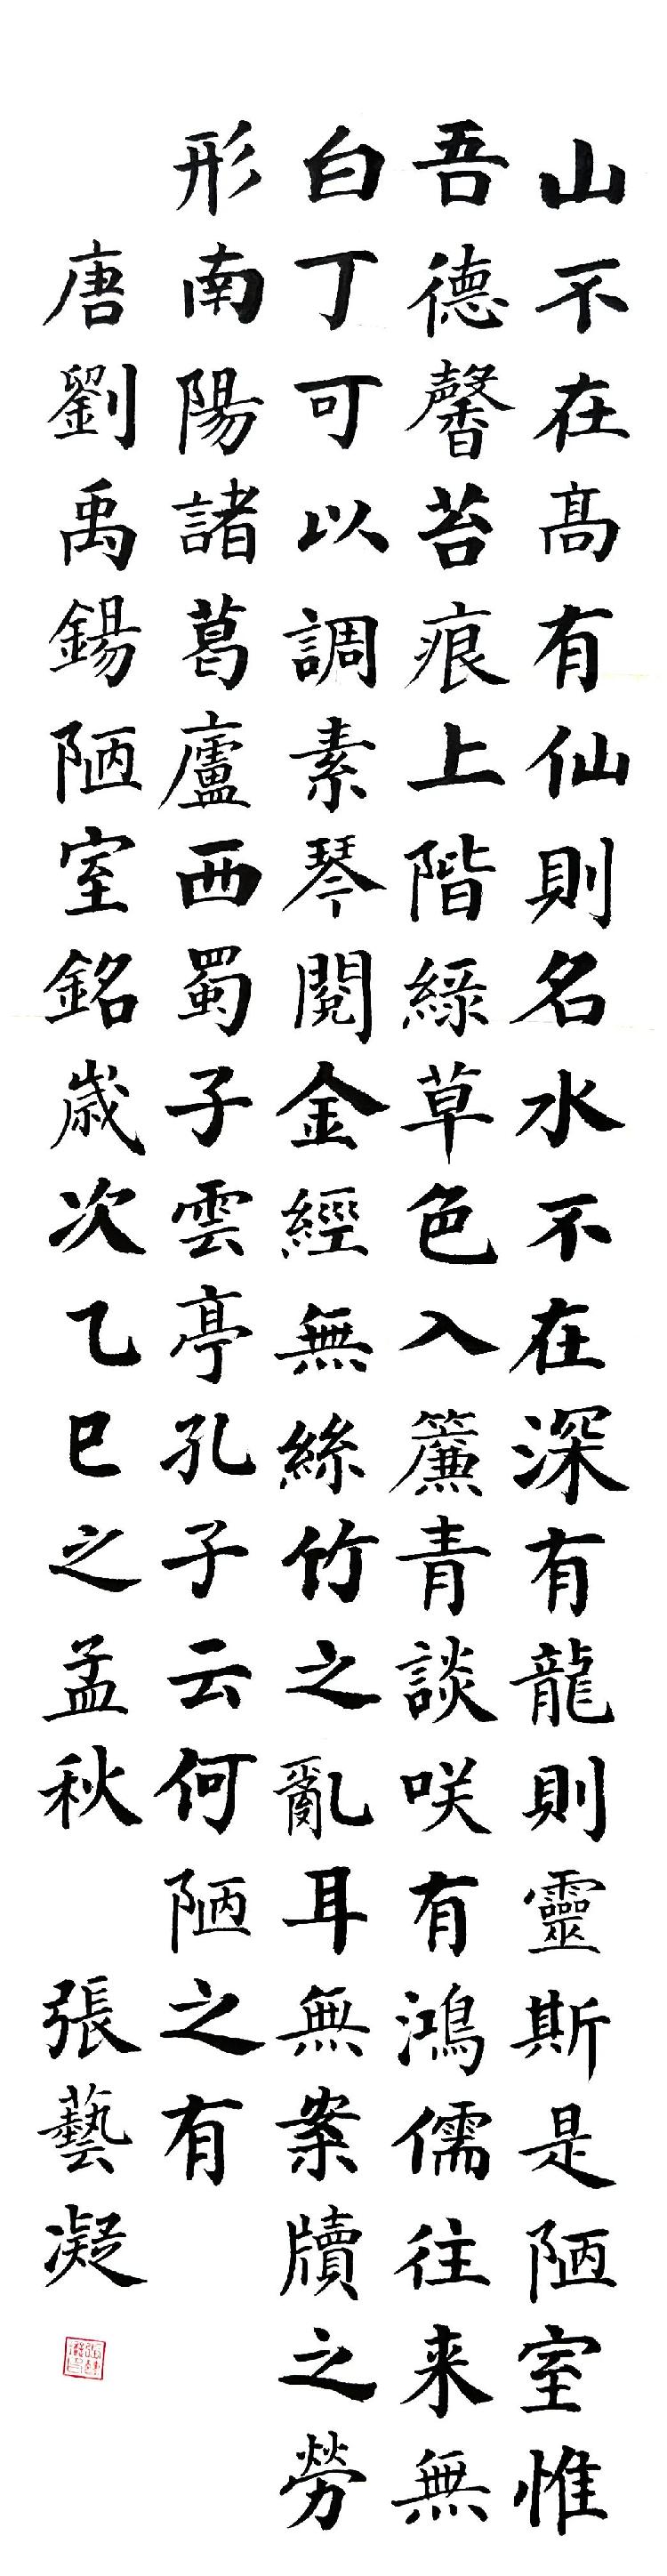 山不在高有仙則名水不在深有龍則靈斯是陋室惟
吾德馨苔痕上階綠草色入簾青談咲有鴻儒往来無
白丁可以調素琴閱金經無絲竹之亂耳無案牘之勞
形南陽諸葛廬西蜀子雲亭孔子云何陋之有
唐劉禹錫陋室銘歲次乙巳之孟秋 張藝凝